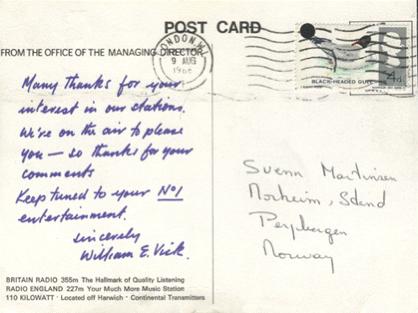 POST CARD
FROM THE OFFICE OF THE MANAGING DIRECTOR
LONDON W.1
9 AUG
BLACK-HEADED GULL
4d
Many thanks for your
interest in our stations.
We're on the air to please
you — so thanks for your
comments
Keep tuned to your No1
entertainment.
Sincerely
William E. Vick.
Svenn Martinsen
Norheim,
Norway
BRITAIN RADIO 355m The Hallmark of Quality Listening
RADIO ENGLAND 227m Your Much More Music Station
110 KILOWATT · Located off Harwich · Continental Transmitters